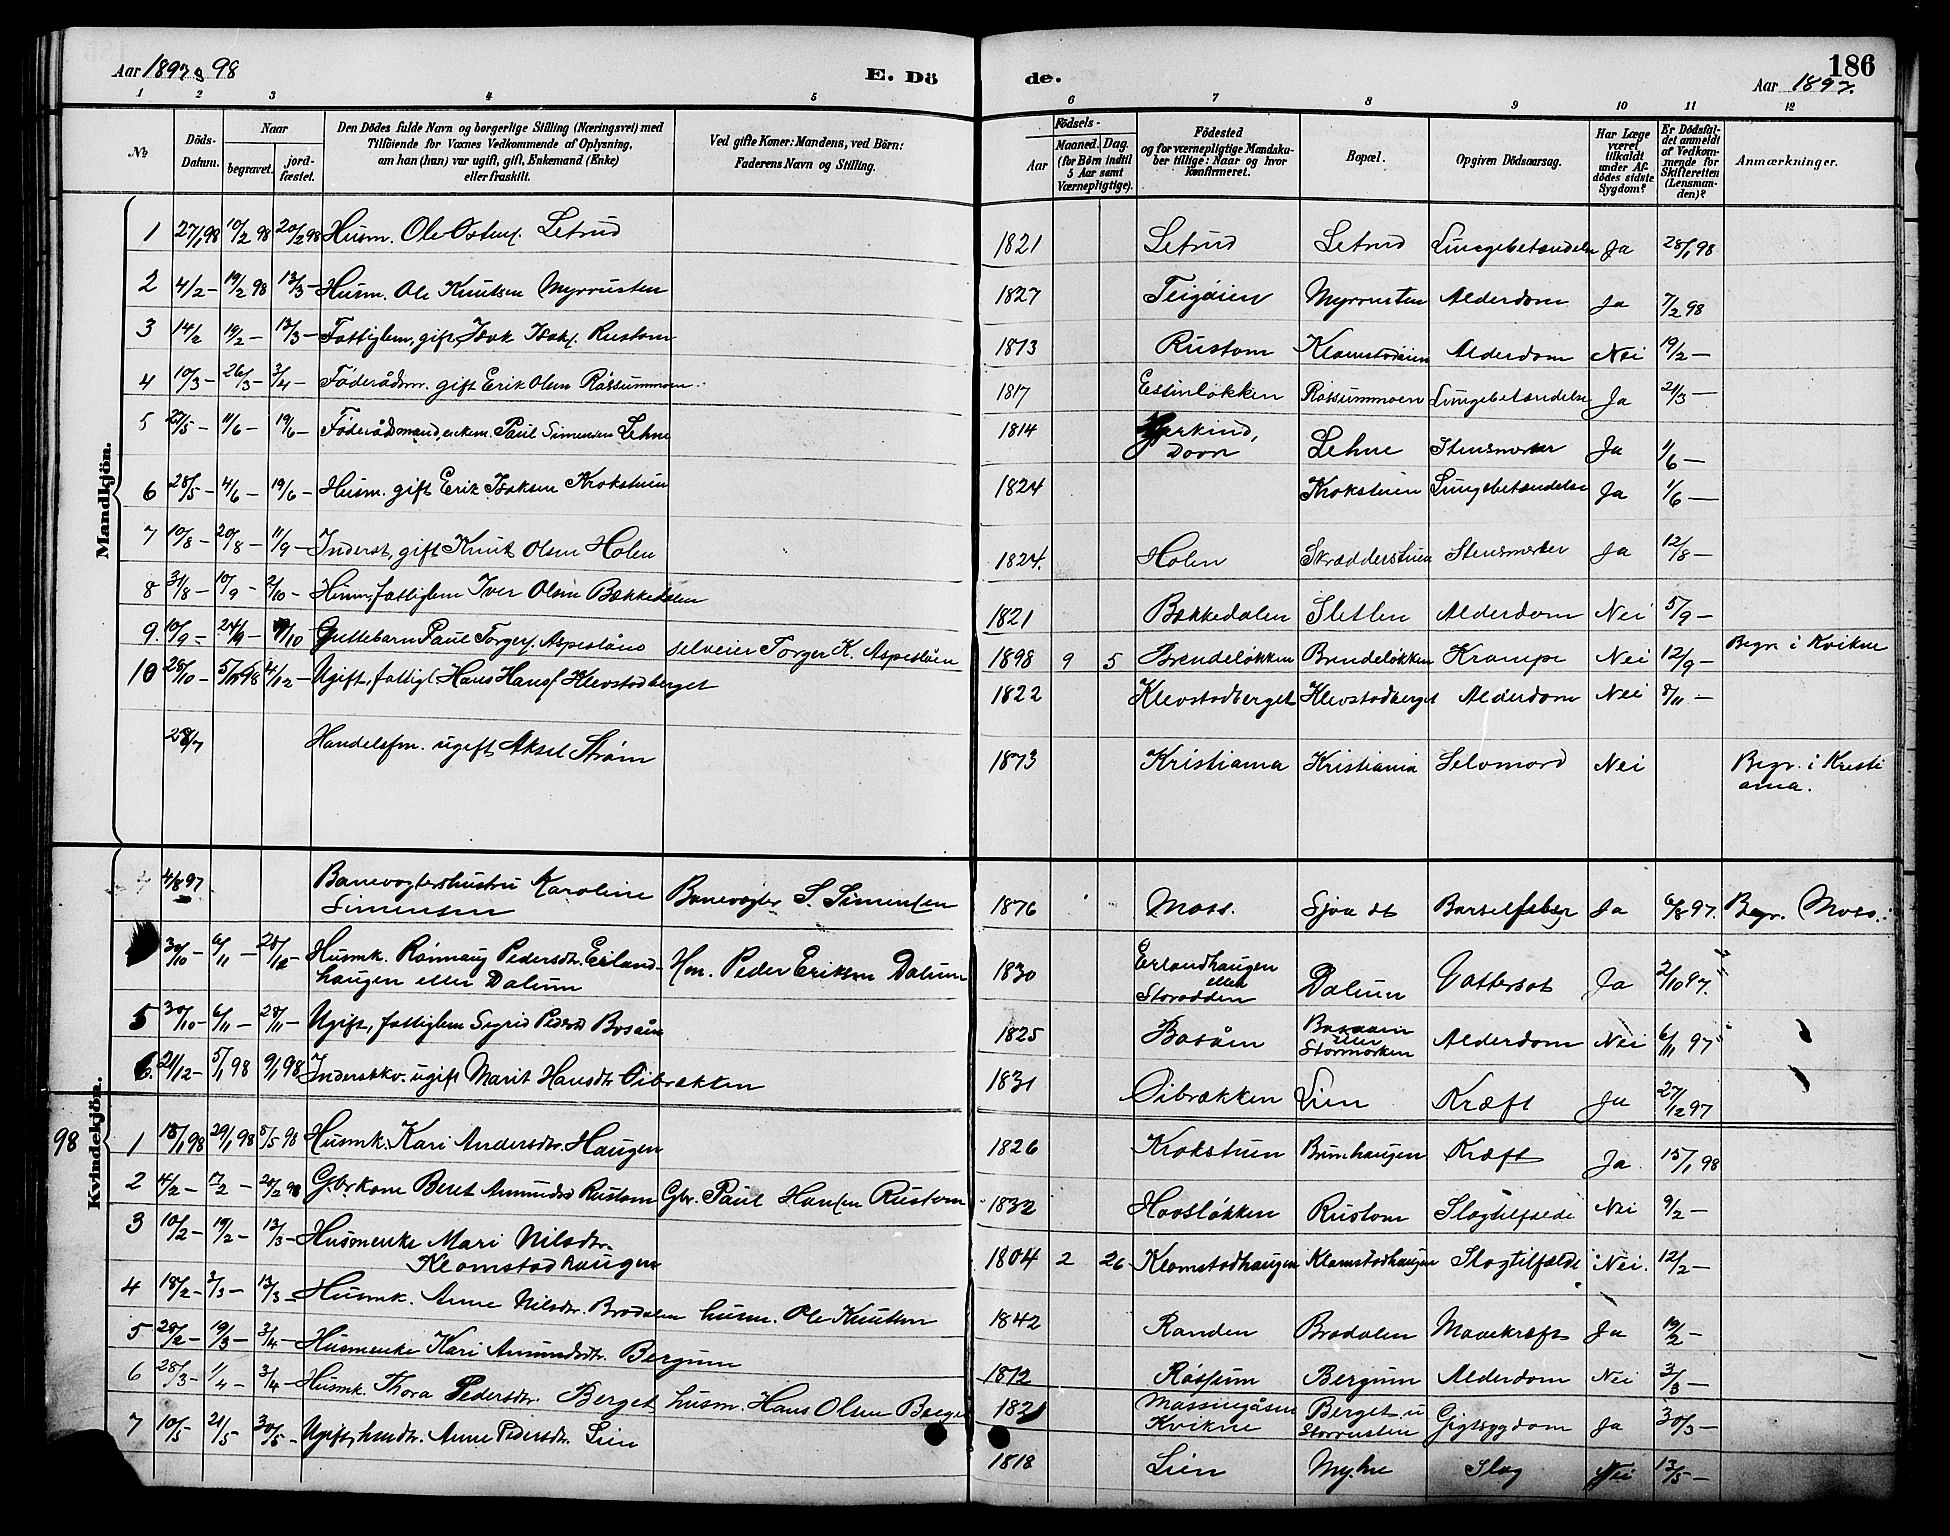 Aar 1897 & 98
E. Dö
de.
186
Aar 1897.
1 2 3 4 5 6 7 8 9 10 11 12
No
Döds-Datum.
Naar
begravet.
jord-fæstet.
Den Dödes fulde Navn og borgerlige Stilling (Næringsvei) med
Tilföiende for Voxnes Vedkommende af Oplysning,
om han (hun) var ugift, gift, Enkemand (Enke)
eller fraskilt.
Ved gifte Koner: Mandens, ved Börn:
Faderens Navn og Stilling.
Födsels-
Aar
Maaned. Dag.
(for Börn indtil
5 Aar samt
Værnepligtige).
Födested
og for værnepligtige Mandska-
ber tillige: Naar og hvor
konfirmeret.
Bopæl.
Opgiven Dödsaarsag.
Har Læge
været
tilkaldt
under Af-
dödes sidste
Sygdom?
Er Dödsfal-
det anmeldt
af Vedkom-
mende for
Skifteretten
(Lensman-
den)?
Anmærkninger.
Mandkjön.
1 27/1 98 10/2 98 20/2 98 Husm. Ole Letrud 1821 Letrud Letrud Lungebetændelse Ja 28/1 98
2 4/2 – 19/2 98 13/3 – Husm. Ole Knutsen Myrrusten 1827 Teigöien Myrrusten Alderdom Ja 7/2 98
3 14/2 19/2 – 13/3 – Fattiglem, gift, Isak Isaks. Rustom 1813 Rustom Klomstadöien Alderdom Nei 19/2 –
4 10/3 – 26/3 – 3/4 – Föderådsm. gift Erik Olsen Røssummoen 1817 Estinløkken Røssummoen Lungebetændelse Ja 21/3 –
5 27/5 – 11/6 – 19/6 – Föderådsmand, enkem. Paul Simensen Lehne 1814 Hjerkind, Dovre Lehne Stensmerter Ja 1/6 –
6 28/5 – 4/6 – 19/6 – Husm. gift Erik Isaksen Krokstuen 1824 Krokstuen Lungebetændelse Ja 1/6 –
7 10/8 – 20/8 – 11/9 – Inderst, gift Knut Olsen Holen 1824. Holen Skrædderstuen Stensmerter Ja 12/8 –
8 31/8 – 10/9 – 2/10 – fattiglem Iver Olsen Bækkedalen 1821 Bækkedalen Sletten Alderdom Nei 5/9 –
9. 10/9 – 24/9 – /10 – Guttebarn Paul Torgers. Aspesløen selveier Torger K. Aspesløen 1898 9 5 Brendeløkken Brendeløkken Krampe Nei 12/9 – Begr. i Kvikne
10 28/10 – 5/11 98 4/12 – Ugift, fattigl. Hans Hans. Klevstadberget 1822 Klevstadberget Klevstadberget Alderdom Nei 8/11 –
28/7 Handelsfm. ugift Aksel Strøm 1873 Kristiania Kristiania Selvmord Nei Begr. i Kristi
ania.
Kvindekjön.
4/8 97 Banevogtershustru Karoline
Simensen Banevogter S. Simensen 1876 Moss. Sjoa st Barselfeber Ja 6/8 97. Begr. Moss.
30/10 – 6/11 – 28/11 – Husmk. Rønnaug Pedersdtr. Erland-
haugen eller Dalum Hm. Peder Eriksen Dalum 1830 Erlandhaugen
eller
Storødden Dalum Vattersot Ja 2/10 97.
5 30/10 – 6/11 – 28/11 – Ugift, fattiglem Sigrid Pedersd Bosåen 1825 Bosåen Bosaaen
eller
Stormorken Alderdom Nei 6/11 97
6. 21/12 – 5/1 98 9/1 98 Inderstkv. ugift Marit Hansdtr Öibrækken 1831 Öibrækken Lien Kræft Ja 27/12 97
98
1 18/1 98 29/1 98 8/5 98 Husmk. Kari Andersdtr. Haugen 1826 Krokstuen Brunhaugen Kræft Ja 15/1 98
2 4/2 – /2 – 20/2 98 Gbrkone Beret Amundsd Rustom Gbr. Paul Hansen Rustom 1832 Hovsløkken Rustom Slagtilfælde Nei 9/2 –
3 10/2 – 19/2 – 13/3 – Husmenke Mari Nilsdtr.
Klomstadhaugen 1804 2 26 Klomstadhaugen Klomstadhaugen Slagtilfælde Nei. 12/2 –
4 18/2 – 3/3 – 13/3 – Husmk. Anne Nilsdtr. Brødalen husm. Ole Knutsen 1842 Randen Brødalen Mavekræft Ja 19/2 –
5 28/2 – 19/3 – 3/4 – Husmenke Kari Amundsdtr. Bergum 1812 Røssum Bergum Alderdom Nei 3/3 –
6 28/3 – 1/4 – 3/4 – Husmk Thora Pedersdtr. Berget husm. Hans Olsen Berget 1821 Massingåsen
Kvikne Berget u
Storrusten Gigtsygdom Ja 30/3 –
7 10/5 – 21/5 – 30/5 – Ugift, husdtr. Anne Pedersdtr. Lien 1818 Lien Myhre Slag Nei 13/5 –